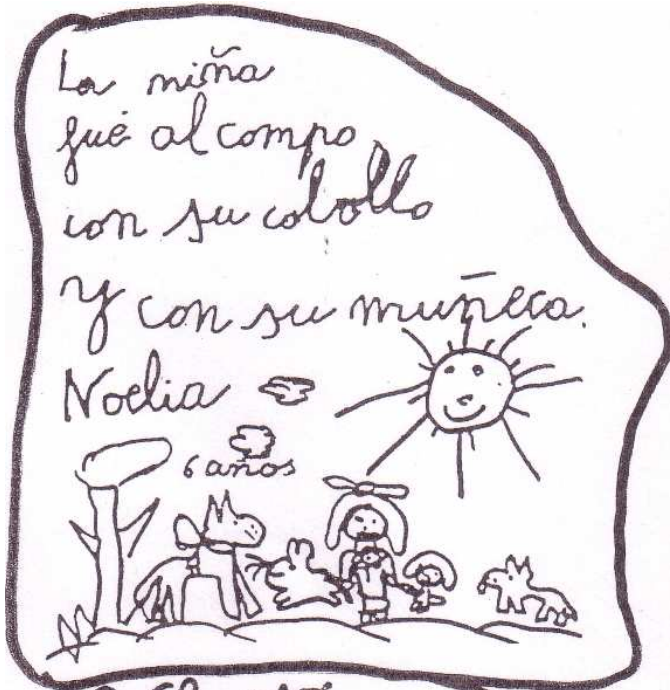 La niña
fué al campo
con su caballo
y con su muñeca.
Noelia
6 años